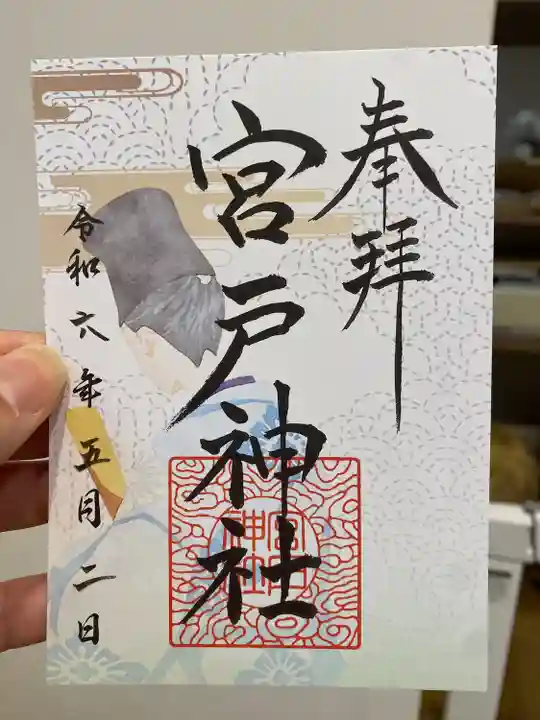 奉拝
宮戸神社
宮戸神社
令和六年五月二日